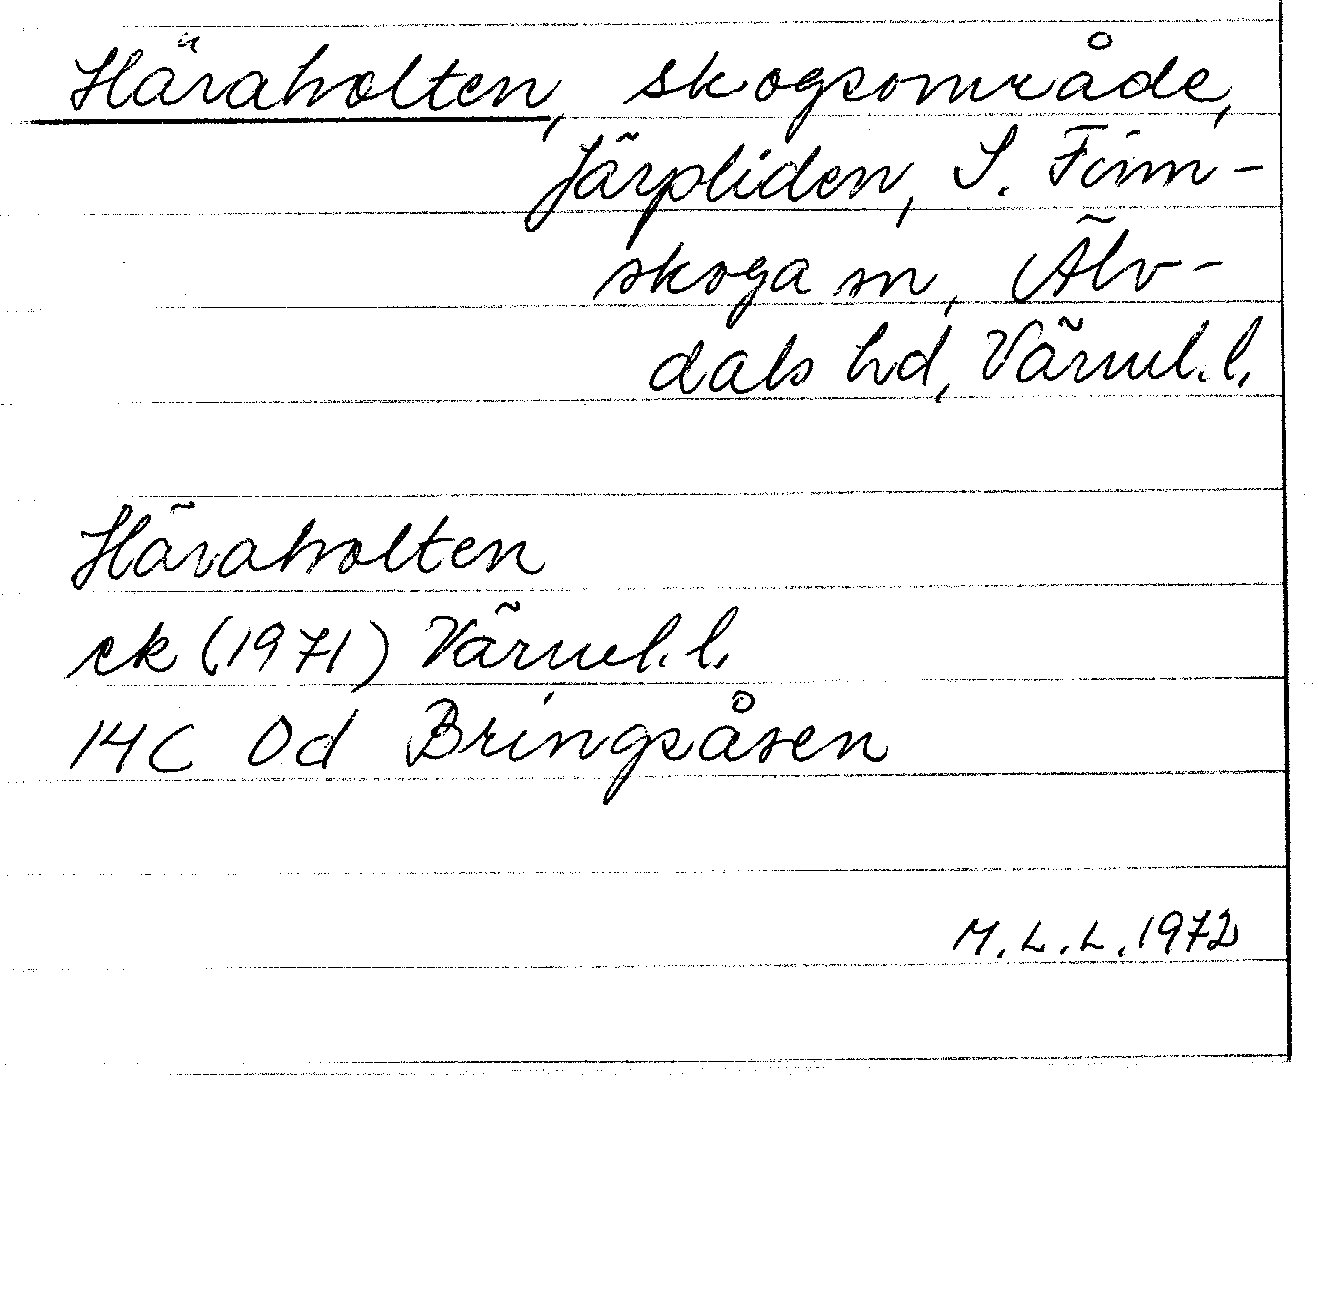 Häraholten, skogsområde,
Järpliden, S. Finn-
skoga sn, Älv-
dals hd, Värml. l.
Häraholten
ek (1971) Värml. l.
14C 0d Bringsåsen
M.L.L. 1972